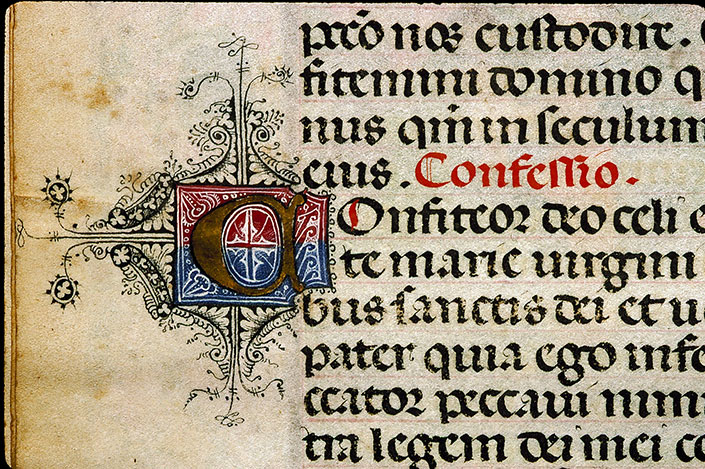 pctō nos custodire. C
fitemini domino q
nus qm̄ in seculum
eius. Confessio.
COnfiteor deo celi e
te marie uirgini
bus sanctis dei et u
pater quia ego infe
ccator peccaui nimi
tra legem dei mei co